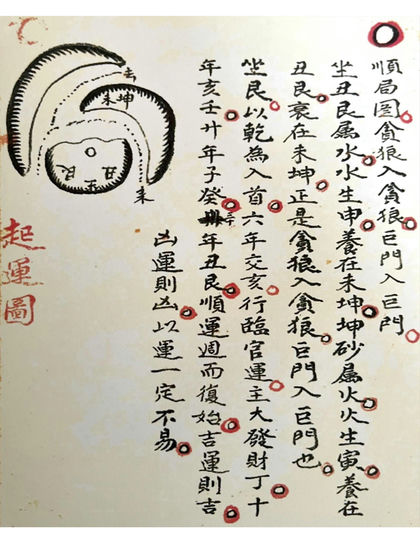 順局圖貪狼入貪狼巨門入巨門
坐丑艮属水水生申養在未坤坤砂属火火生寅養在
丑艮衰在未坤正是貪狼入貪狼巨門入巨門也
坐艮以乾為入首六年交亥行臨官運主大發財丁十
年亥壬廿年子癸年丑艮順運週而復始吉運則吉
凶運則凶以運一定不易
去
未坤
丑正艮
来
起運圖